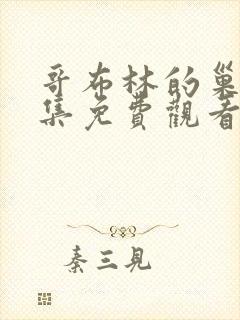 哥布林的巢
集免費觀看
秦三見